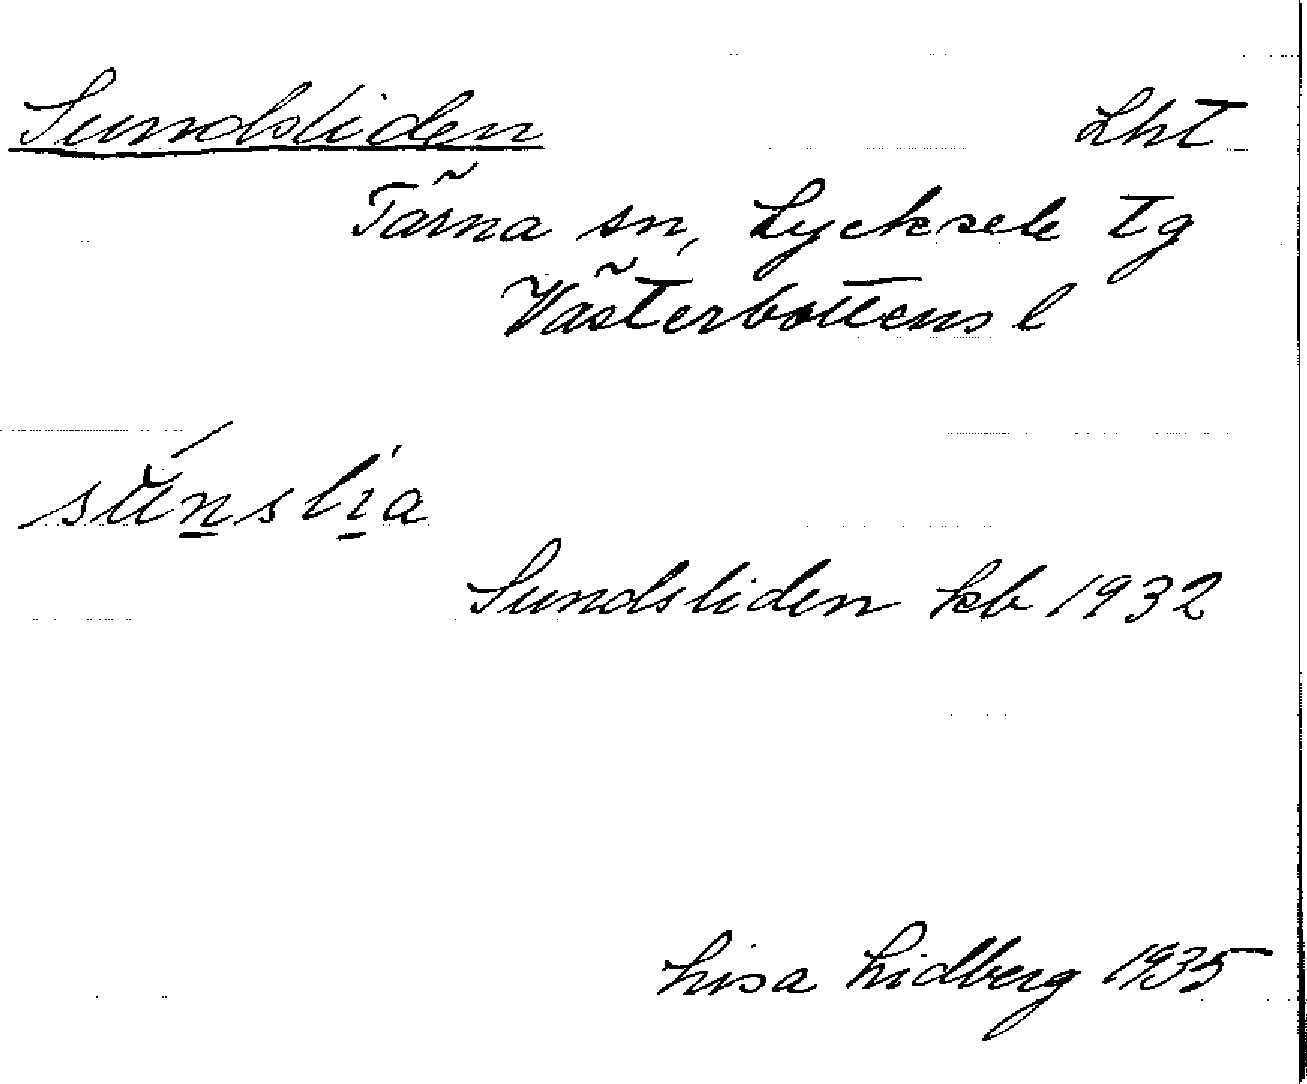 Sundsliden Lht
Tärna sn, Lycksele tg
Västerbottens l
sŭ́n̲sli̲̍a
Sundsliden kb 1932
Lisa Lidberg 1935